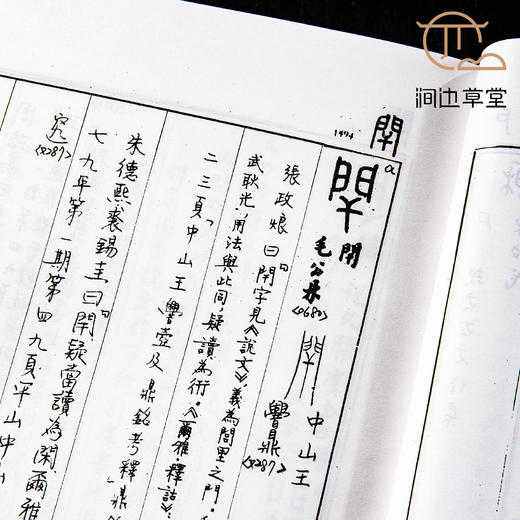 涧边草堂
1474
閈
a
閈
毛公鼎
<0680>
中山王
譽鼎
<0287>
張政烺曰「閈字見《說文》義為閭里之門,
武耿光,用法與此同,疑讀為術。《爾雅·釋詁》:
二三頁「中山王譽壺及鼎銘考釋」鼎
朱德熙裘錫圭曰「閈疑當讀為閑爾雅
七九年第一期第四九頁平山中山
<0287>